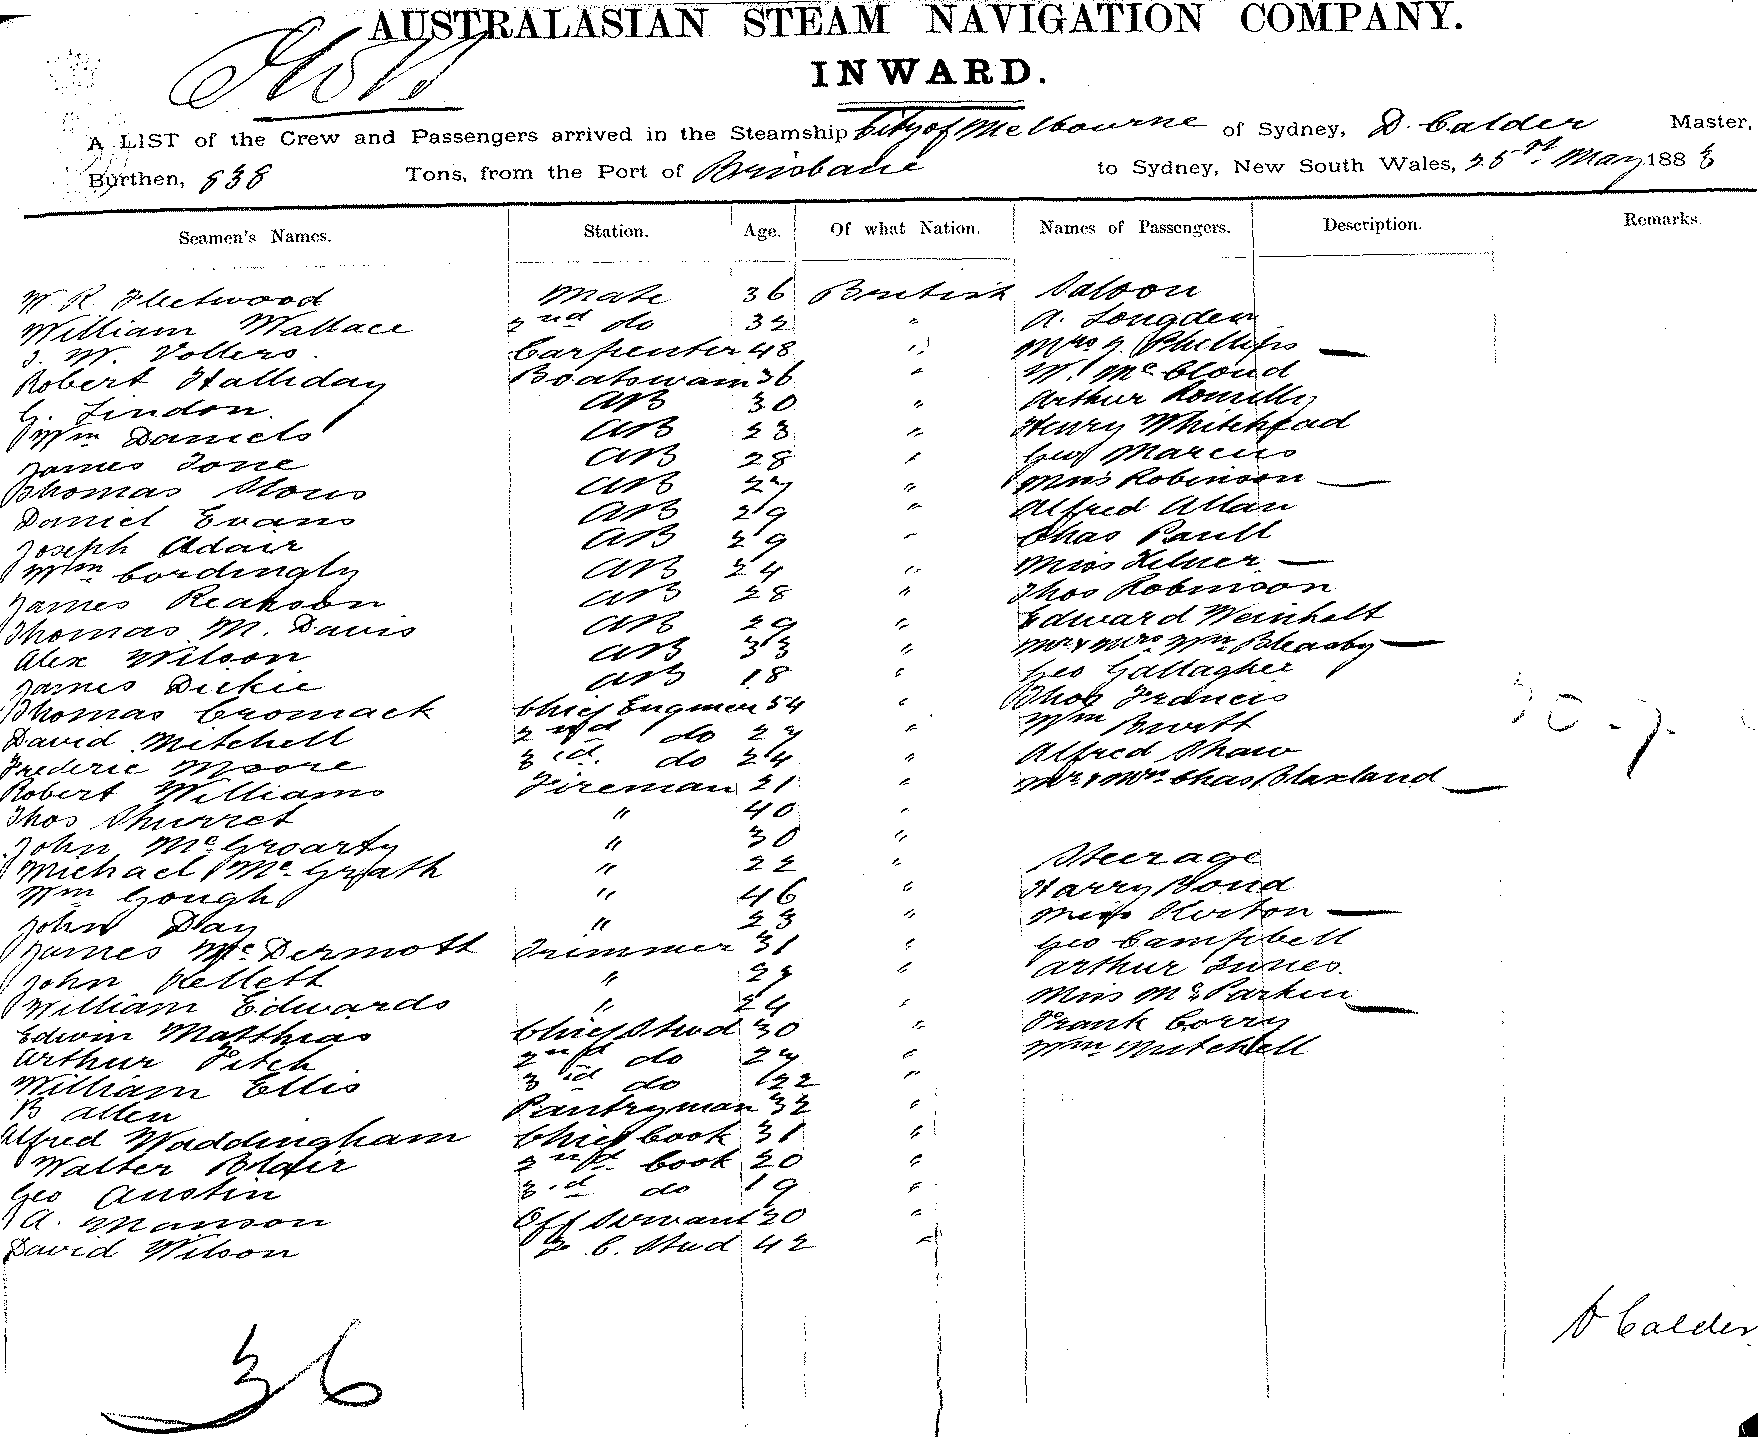 AUSTRALASIAN STEAM NAVIGATION COMPANY.
INWARD.
A LIST of the Crew and Passengers arrived in the Steamship City of Melbourne of Sydney, D. Calder Master,
Burthen, 838 Tons, from the Port of Brisbane to Sydney, New South Wales, 25th May 1883
Seamen's Names. Station. Age. Of what Nation. Names of Passengers. Description. Remarks.
W R Fleetwood Mate 36 British Saloon
William Wallace 2nd do 32 " A. Longden
J. W. Vollers. Carpenter 48 " Mrs J. Phillips —
Robert Halliday Boatswain 36 " W. McCloud
G. Lindon. AB 30 " Arthur Romilly
Wm Daniels AB 23 " Henry Whitehead
James Tone AB 28 " Gus Marcus
Thomas AB 27 " Miss Robinson —
Daniel Evans AB 29 " Alfred Allan
Joseph Adair AB 29 " Chas Paull
Wm Cordingly AB 24 " Miss —
James AB 28 " Thos Robinson
Thomas M. Davis AB 29 " Edward Weinholt
Alex Wilson AB 33 " Mr & Mrs Wm Bleasby —
James Dickie AB 18 " Geo Gallagher
Thomas Cromack Chief Engineer 54 " Thos Francis
David Mitchell 2nd do 27 " Wm
Frederic Moore 3rd. do 24 " Alfred Shaw
Robert Williams Fireman 21 " Mr & Mrs Chas Blaxland —
Thos " 40 "
John McGroarty " 30 "
Michael McGrath " 22 " Steerage
Wm Gough " 46 " Harry Bond
John Day " 23 " Miss —
James McDermott Trimmer 31 " Geo Campbell
John Kellett " 29 " Arthur Innes.
William Edwards " 24 " Miss McParkin —
Edwin Matthias Chief Stwd 30 " Frank Corry
Arthur Fitch 2nd do 27 " Wm Mitchell
William Ellis 3rd do 22 "
B Allen Pantryman 32 "
Alfred Waddingham Chief Cook 31 "
Walter Blair 2nd Cook 20 "
Geo Austin 3rd do 19 "
A. Manson Off Servant 20 "
David Wilson F. C. Stwd 42 "
36
D Calder